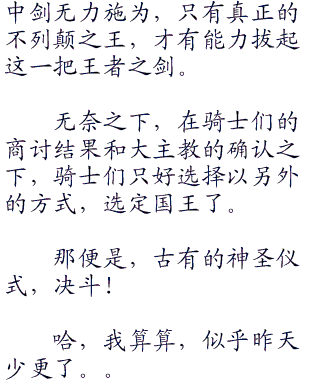 中剑无力施为，只有真正的
不列颠之王，才有能力拔起
这一把王者之剑。
无奈之下，在骑士们的
商讨结果和大主教的确认之
下，骑士们只好选择以另外
的方式，选定国王了。
那便是，古有的神圣仪
式，决斗！
哈，我算算，似乎昨天
少更了。。